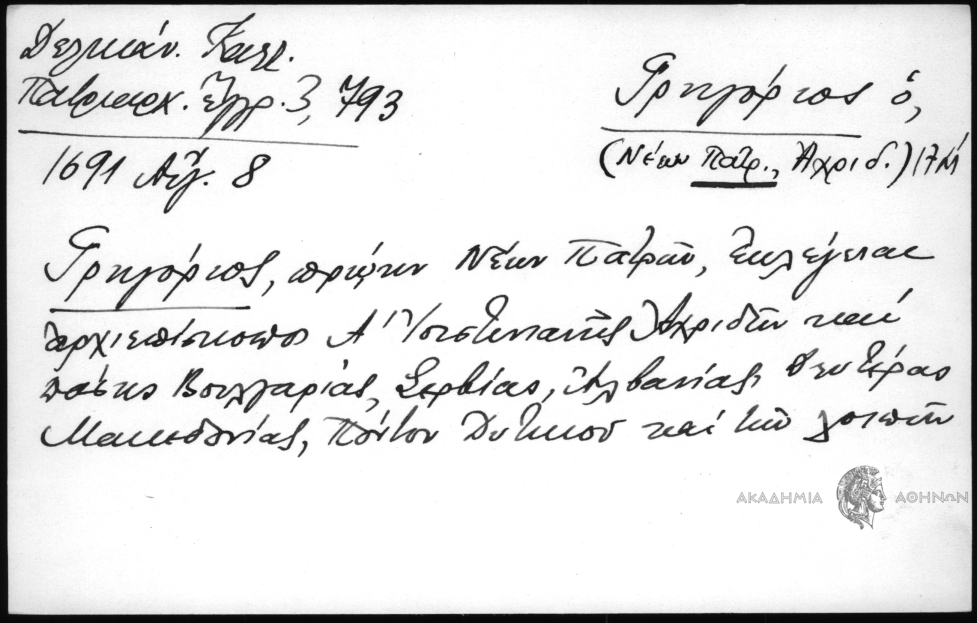 Δελικάν. Καλλ.
Πατριαρχ. Ἔγγρ. 3, 793
1691 Αὔγ. 8
Γρηγόριος ὁ,
(Νέων Πατρ., Ἀχριδ.) 17Μ
Γρηγόριος, πρώην Νέων Πατρῶν, ἐκλέγεται
ἀρχιεπίσκοπος Α' Ἰουστινιανῆς Ἀχριδῶν καὶ
πάσης Βουλγαρίας, Σερβίας, Ἀλβανίας, Δευτέρας
Μακεδονίας, Πόντου Δυτικοῦ καὶ τῶν λοιπῶν
ΑΚΑΔΗΜΙΑ ΑΘΗΝΩΝ